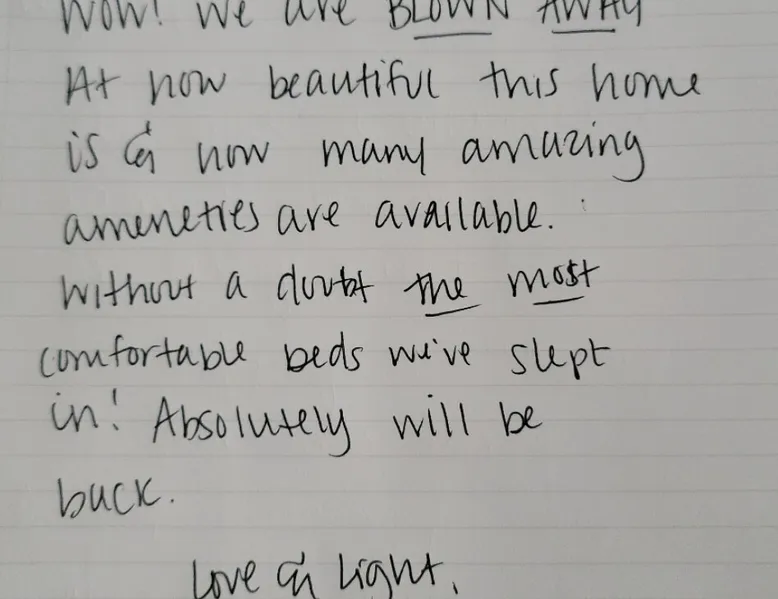 WOW! We are BLOWN AWAY
At how beautiful this home
is & how many amazing
ameneties are available.
Without a doubt the most
comfortable beds we've slept
in! Absolutely will be
back.
Love & Light,